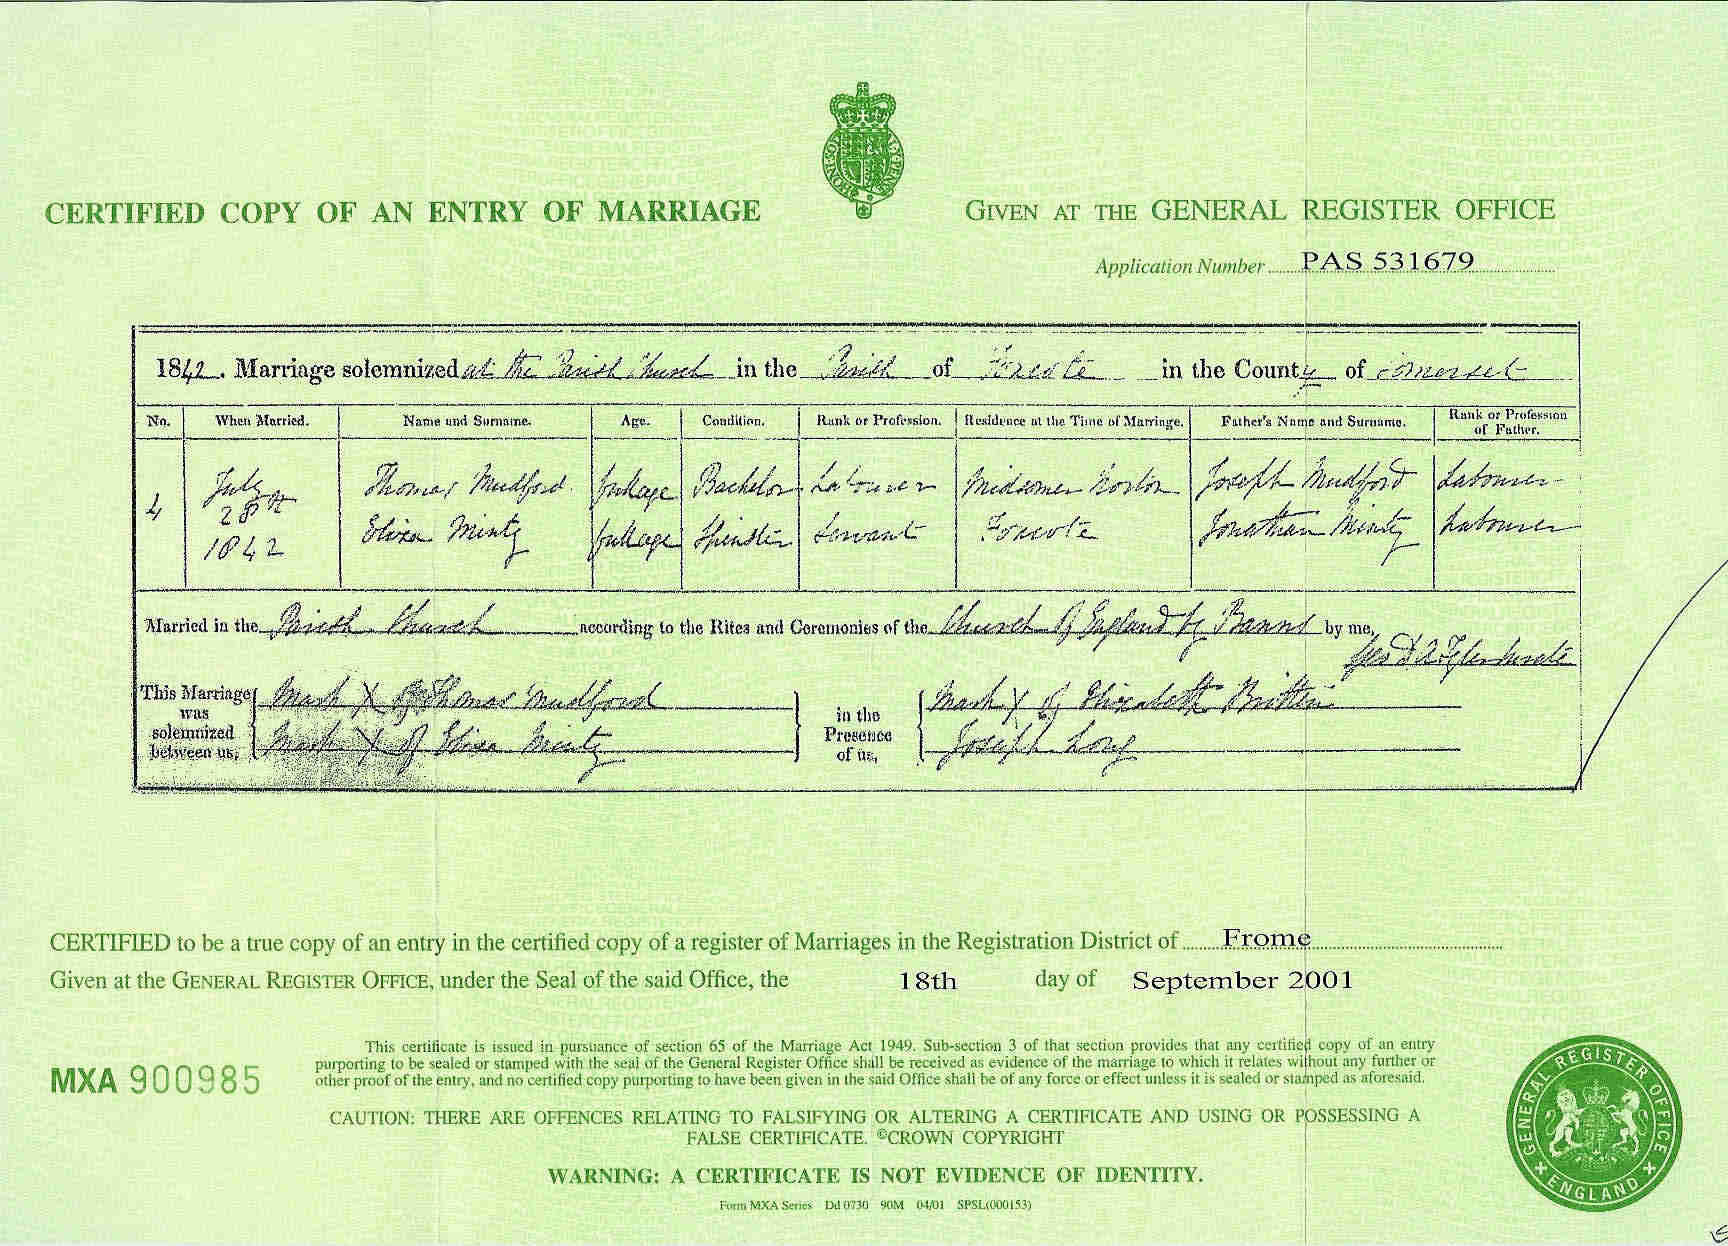 CERTIFIED COPY OF AN ENTRY OF MARRIAGE
GIVEN AT THE GENERAL REGISTER OFFICE
Application Number PAS 531679
1842. Marriage solemnized at the Parish Church in the Parish of Foxcote in the County of Somerset
No. When Married. Name and Surname. Age. Condition. Rank or Profession. Residence at the Time of Marriage. Father's Name and Surname. Rank or Profession of Father.
4 July 28th 1842 Thomas Mudford full age Bachelor Labourer Midsomer Norton Joseph Mudford Labourer
Eliza Minty full age Spinster Servant Foxcote Jonathan Minty Labourer
Married in the Parish Church according to the Rites and Ceremonies of the Church of England by Banns by me,
This Marriage was solemnized between us,
Mark X of Thomas Mudford
Mark X of Eliza Minty
in the Presence of us,
Mark X of Elizabeth Britten
Joseph Long
CERTIFIED to be a true copy of an entry in the certified copy of a register of Marriages in the Registration District of Frome
Given at the GENERAL REGISTER OFFICE, under the Seal of the said Office, the 18th day of September 2001
MXA 900985
This certificate is issued in pursuance of section 65 of the Marriage Act 1949. Sub-section 3 of that section provides that any certified copy of an entry
purporting to be sealed or stamped with the seal of the General Register Office shall be received as evidence of the marriage to which it relates without any further or
other proof of the entry, and no certified copy purporting to have been given in the said Office shall be of any force or effect unless it is sealed or stamped as aforesaid.
CAUTION: THERE ARE OFFENCES RELATING TO FALSIFYING OR ALTERING A CERTIFICATE AND USING OR POSSESSING A
FALSE CERTIFICATE. ©CROWN COPYRIGHT
WARNING: A CERTIFICATE IS NOT EVIDENCE OF IDENTITY.
Form MXA Series Dd 0730 90M 04/01 SPSL(000153)
GENERAL REGISTER OFFICE
ENGLAND